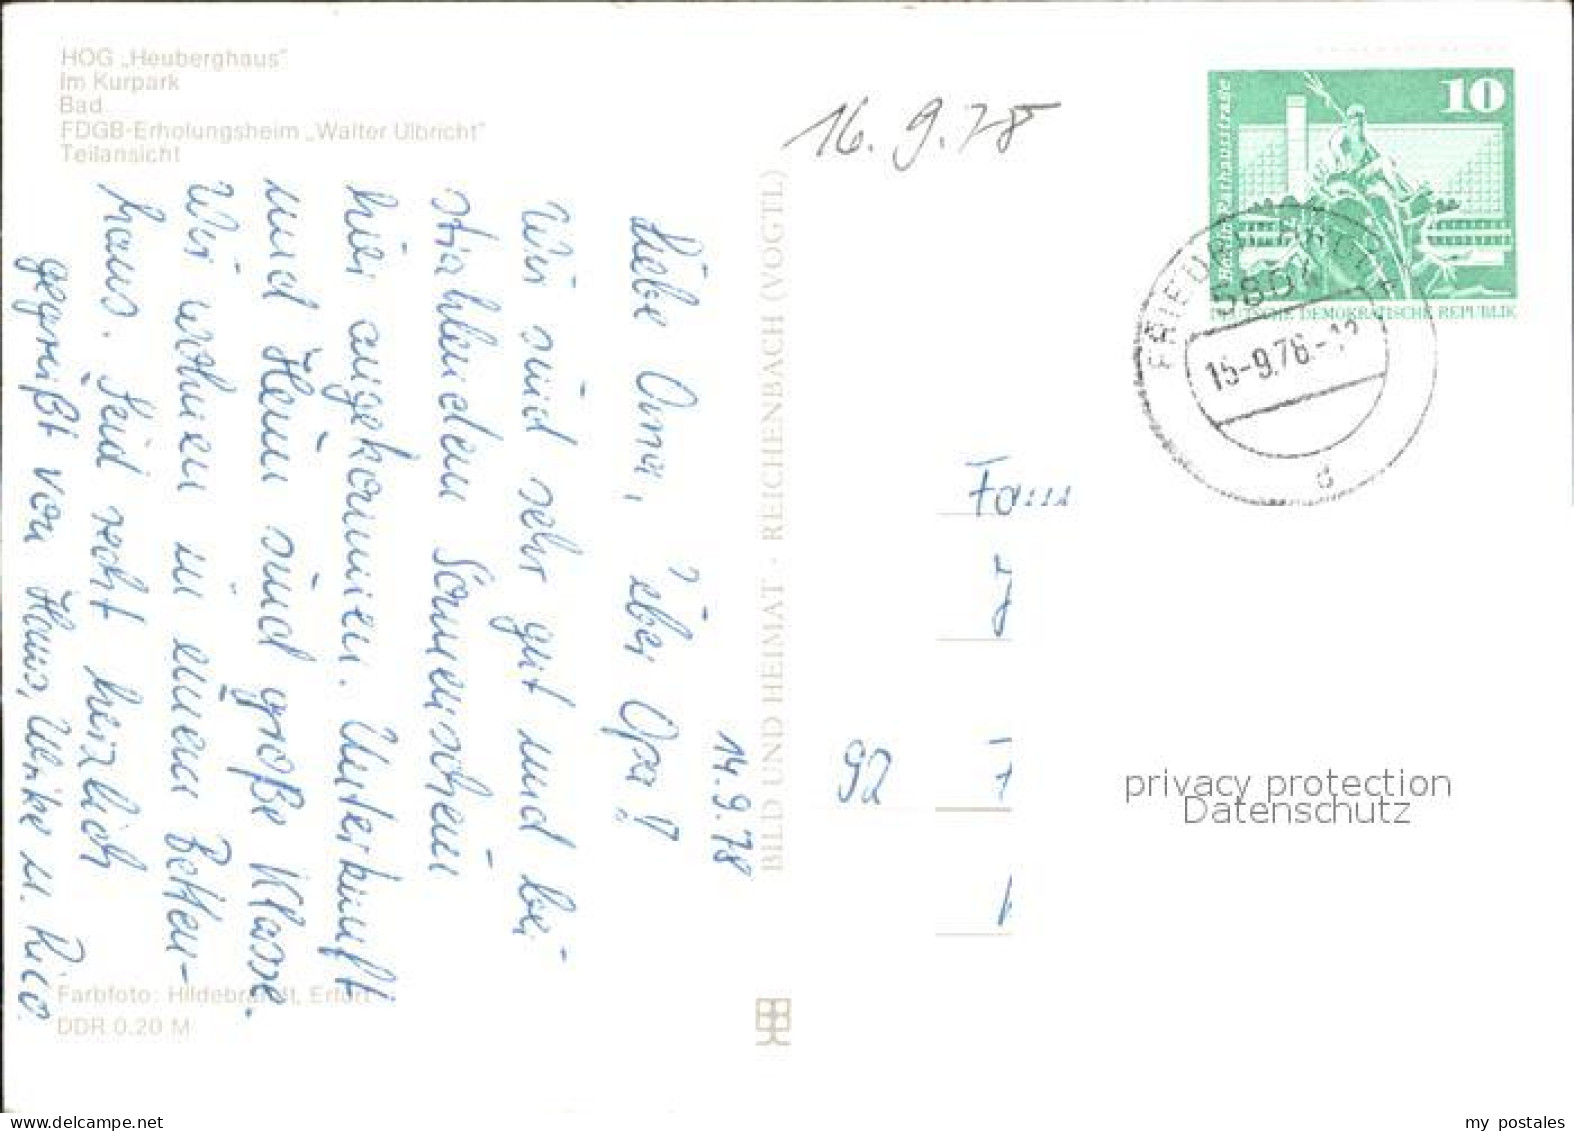 HOG „Heuberghaus"
Im Kurpark
Bad
FDGB-Erholungsheim „Walter Ulbricht"
Teilansicht
16.9.78
10
Rathausstraße
DEUTSCHE DEMOKRATISCHE REPUBLIK
5804
15-9.78-12
d
14.9.78
Liebe Oma, lieber Opa!
Wir sind sehr gut und bei
strahlenden Sonnenschein
hier angekommen. Unterkunft
und Heim sind große Klasse.
Wir wohnen in einem Betten-
haus. Seid recht herzlich
gegrüßt von Hans, Ulrike u. Rico
BILD UND HEIMAT · REICHENBACH (VOGTL)
Fam
92
privacy protection
Datenschutz
Farbfoto: Hildebrandt, Erfurt
DDR 0.20 M
delcampe.net
my postales